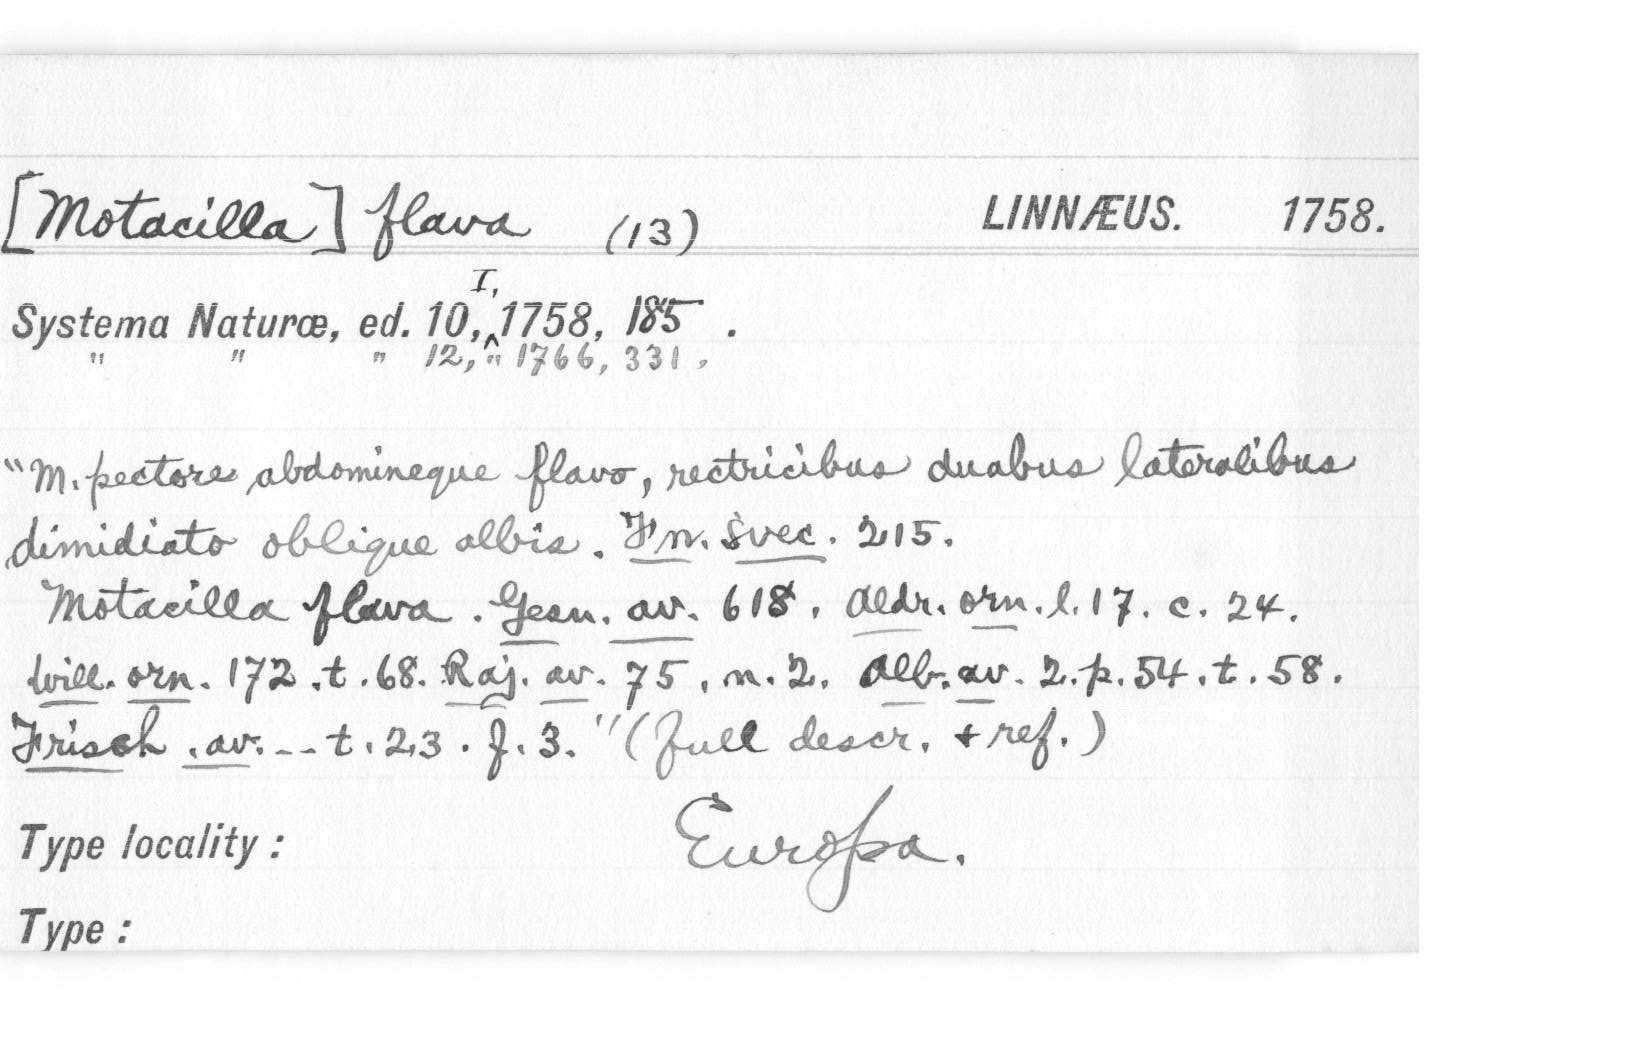 [Motacilla] flava (13) LINNÆUS. 1758.
Systema Naturæ, ed. 10, I, 1758, 185 .
" " " 12, " 1766, 331 .
"M. pectore abdomineque flavo, rectricibus duabus lateralibus
dimidiato oblique albis. Fn. Svec. 215.
Motacilla flava. Gesn. av. 618. Aldr. orn. l. 17. c. 24.
Will. orn. 172. t. 68. Raj. av. 75. n. 2. Alb. av. 2. p. 54. t. 58.
Frisch. av. -- t. 23. f. 3." (full descr. + ref.)
Type locality : Europa.
Type :